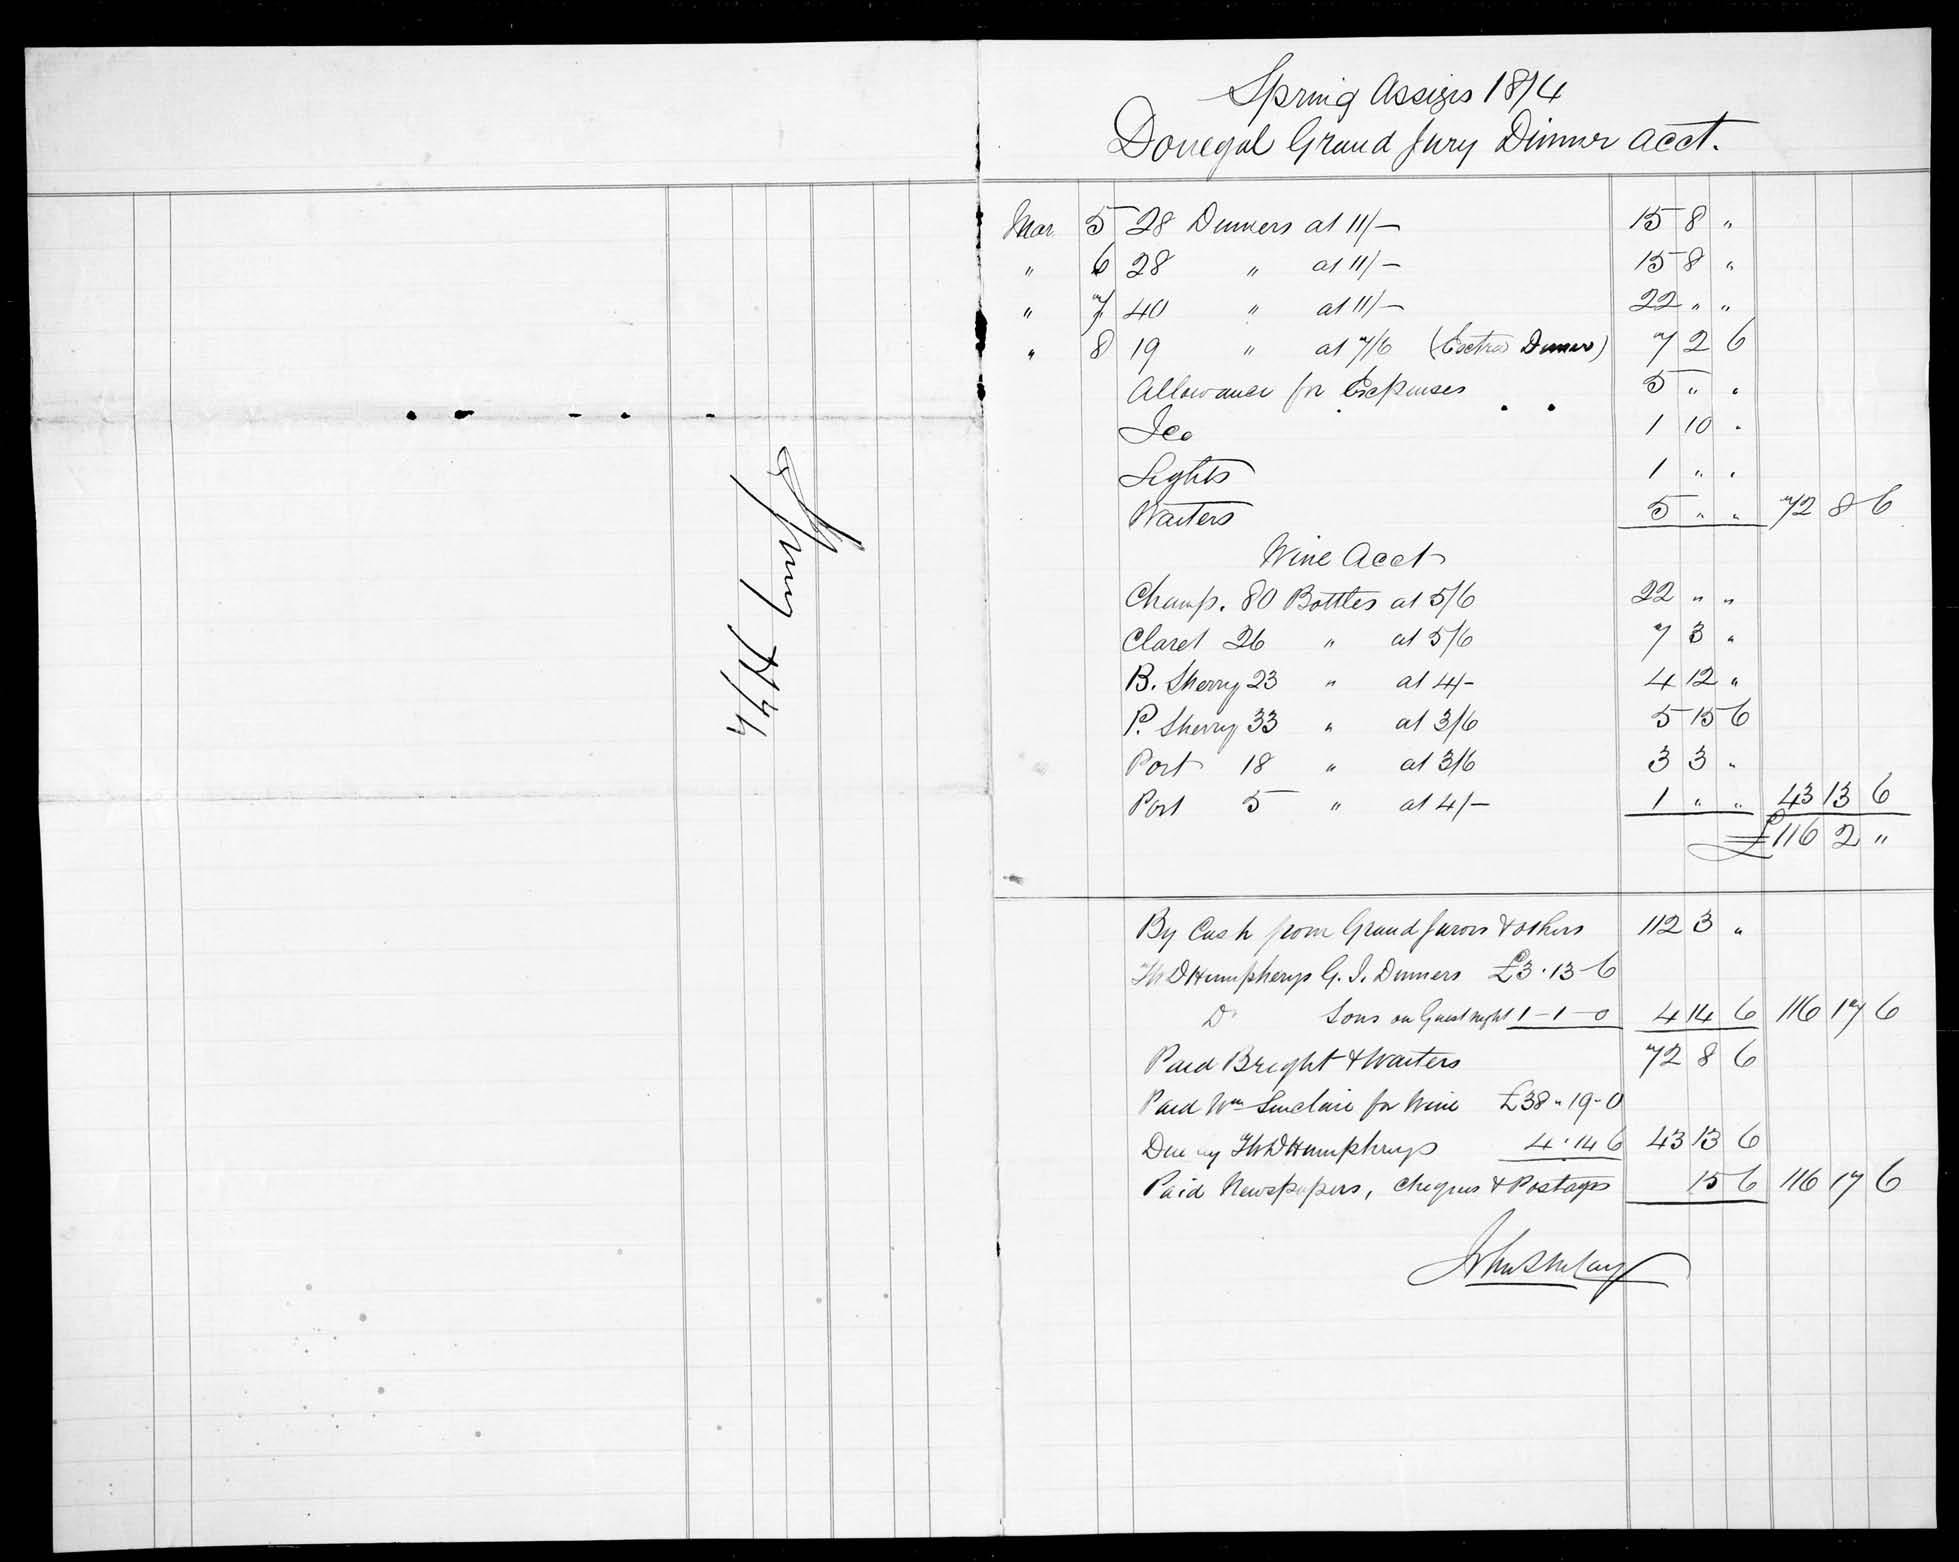 Spring H/74
Spring Assizes 1874
Donegal Grand Jury Dinner Acct.
Mar 5 28 Dinners at 11/- 15 8 "
" 6 28 " at 11/- 15 8 "
" 7 40 " at 11/- 22 " "
" 8 19 " at 7/6 (Extra Dinner) 7 2 6
Allowance for Expenses 5 " "
Ice 1 10 "
Lights 1 " "
Waiters 5 " " 72 8 6
Wine Acct
Champ. 80 Bottles at 5/6 22 " "
Claret 26 " at 5/6 7 3 "
B. Sherry 23 " at 4/- 4 12 "
P. Sherry 33 " at 3/6 5 15 6
Port 18 " at 3/6 3 3 "
Port 5 " at 4/- 1 " " 43 13 6
£116 2 "
By Cash from Grand Jurors & others 112 3 "
Th D Humphreys G. J. Dinners £3.13-6
Do Sons on Guest night 1-1-0 4 14 6 116 17 6
Paid Bright & Waiters 72 8 6
Paid Wm Sinclair for Wine £38-19-0
Due by Th D Humphreys 4.14 6 43 13 6
Paid Newspapers, Cheques & Postages 15 6 116 17 6